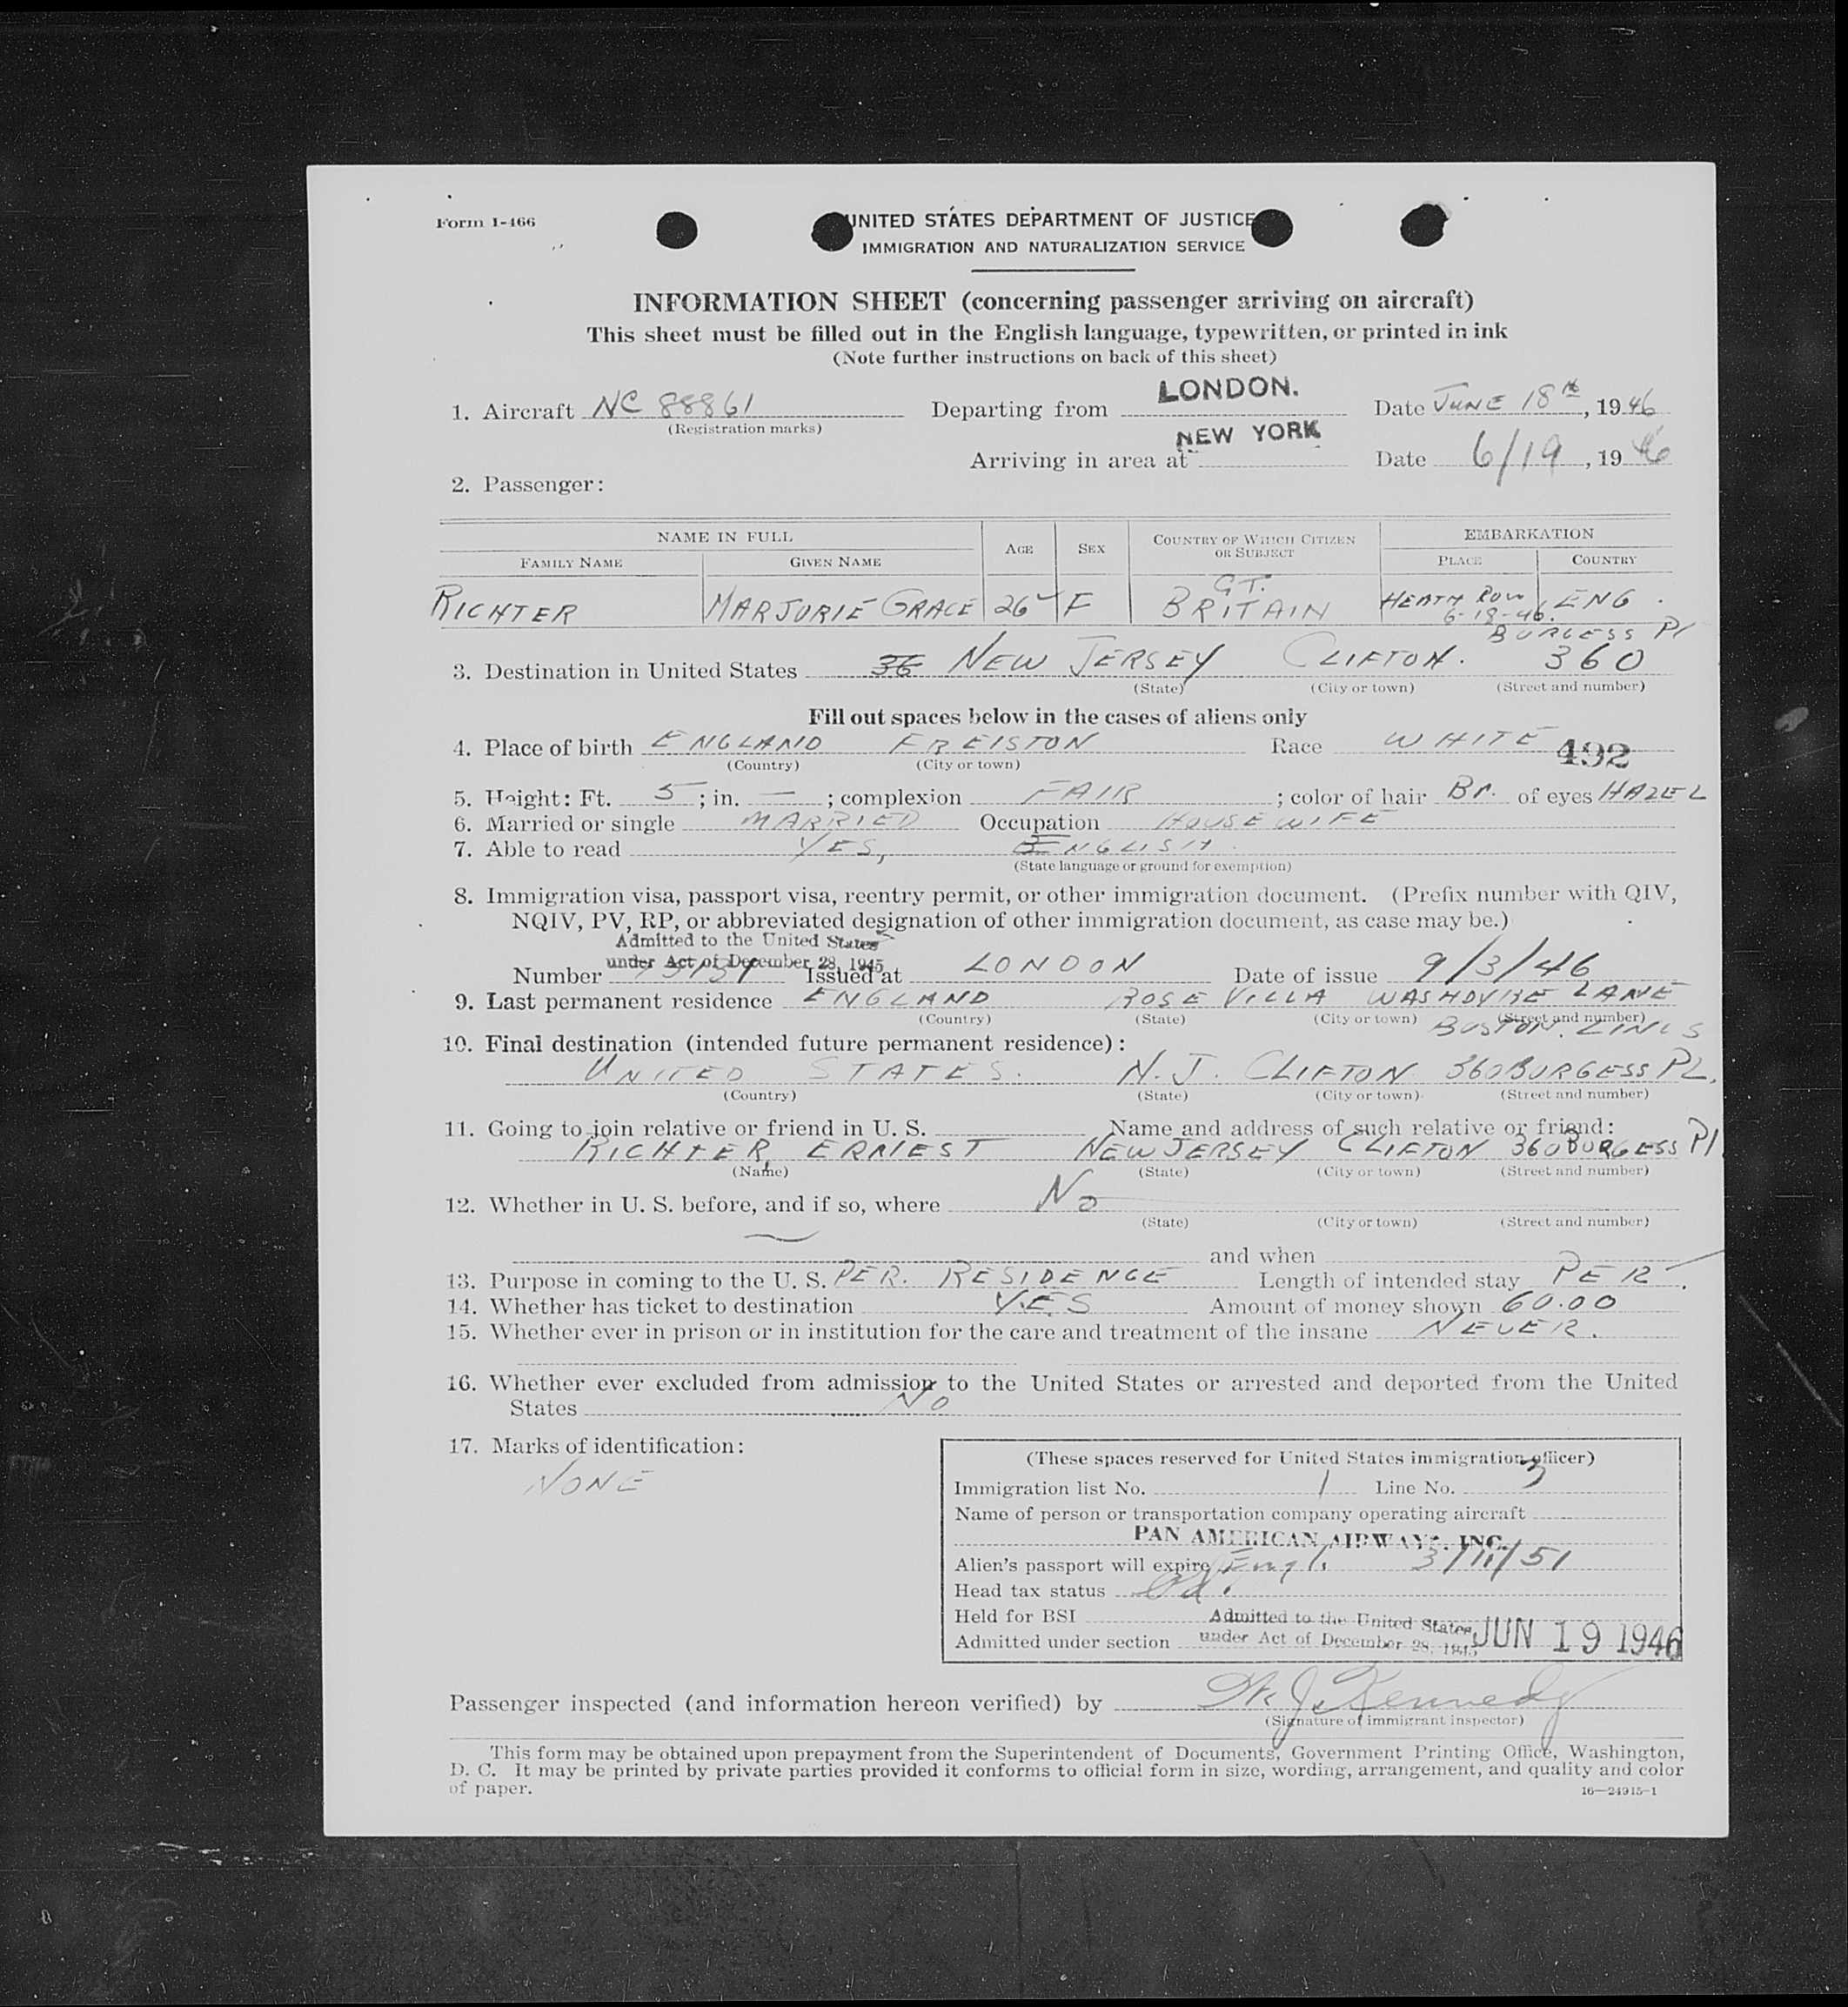 Form I-466
UNITED STATES DEPARTMENT OF JUSTICE
IMMIGRATION AND NATURALIZATION SERVICE
INFORMATION SHEET (concerning passenger arriving on aircraft)
This sheet must be filled out in the English language, typewritten, or printed in ink
(Note further instructions on back of this sheet)
1. Aircraft NC 88861 Departing from LONDON. Date JUNE 18th, 1946
(Registration marks)
Arriving in area at NEW YORK Date 6/19, 1946
2. Passenger:
NAME IN FULL AGE SEX COUNTRY OF WHICH CITIZEN OR SUBJECT EMBARKATION
FAMILY NAME GIVEN NAME PLACE COUNTRY
RICHTER MARJORIE GRACE 26 F GT. BRITAIN HEATH ROW 6-18-46. ENG.
BURGESS Pl
3. Destination in United States 36 NEW JERSEY CLIFTON. 360
(State) (City or town) (Street and number)
Fill out spaces below in the cases of aliens only
4. Place of birth ENGLAND FREISTON Race WHITE 492
(Country) (City or town)
5. Height: Ft. 5; in. —; complexion FAIR; color of hair Br. of eyes HAZEL
6. Married or single MARRIED Occupation HOUSEWIFE
7. Able to read YES, ENGLISH.
(State language or ground for exemption)
8. Immigration visa, passport visa, reentry permit, or other immigration document. (Prefix number with QIV,
NQIV, PV, RP, or abbreviated designation of other immigration document, as case may be.)
Admitted to the United States
under Act of December 28, 1945
Number Issued at LONDON Date of issue 9/3/46
9. Last permanent residence ENGLAND ROSE VILLA WASHDYKE LANE
(Country) (State) (City or town) (Street and number)
BOSTON. LINCS
10. Final destination (intended future permanent residence):
UNITED STATES. N.J. CLIFTON 360 BURGESS PL.
(Country) (State) (City or town) (Street and number)
11. Going to join relative or friend in U. S. Name and address of such relative or friend:
RICHTER, ERNEST NEW JERSEY CLIFTON 360 BURGESS Pl
(Name) (State) (City or town) (Street and number)
12. Whether in U. S. before, and if so, where No
(State) (City or town) (Street and number)
and when
13. Purpose in coming to the U. S. PER. RESIDENCE Length of intended stay PER.
14. Whether has ticket to destination YES Amount of money shown 60.00
15. Whether ever in prison or in institution for the care and treatment of the insane NEVER.
16. Whether ever excluded from admission to the United States or arrested and deported from the United
States No
17. Marks of identification:
NONE
(These spaces reserved for United States immigration officer)
Immigration list No. 1 Line No. 3
Name of person or transportation company operating aircraft
PAN AMERICAN AIRWAYS, INC.
Alien's passport will expire Engl. 3/11/51
Head tax status Pd.
Held for BSI
Admitted to the United States
Admitted under section under Act of December 28, 1945 JUN 19 1946
Passenger inspected (and information hereon verified) by J. Kennedy
(Signature of immigrant inspector)
This form may be obtained upon prepayment from the Superintendent of Documents, Government Printing Office, Washington,
D. C. It may be printed by private parties provided it conforms to official form in size, wording, arrangement, and quality and color
of paper.
16—24915-1